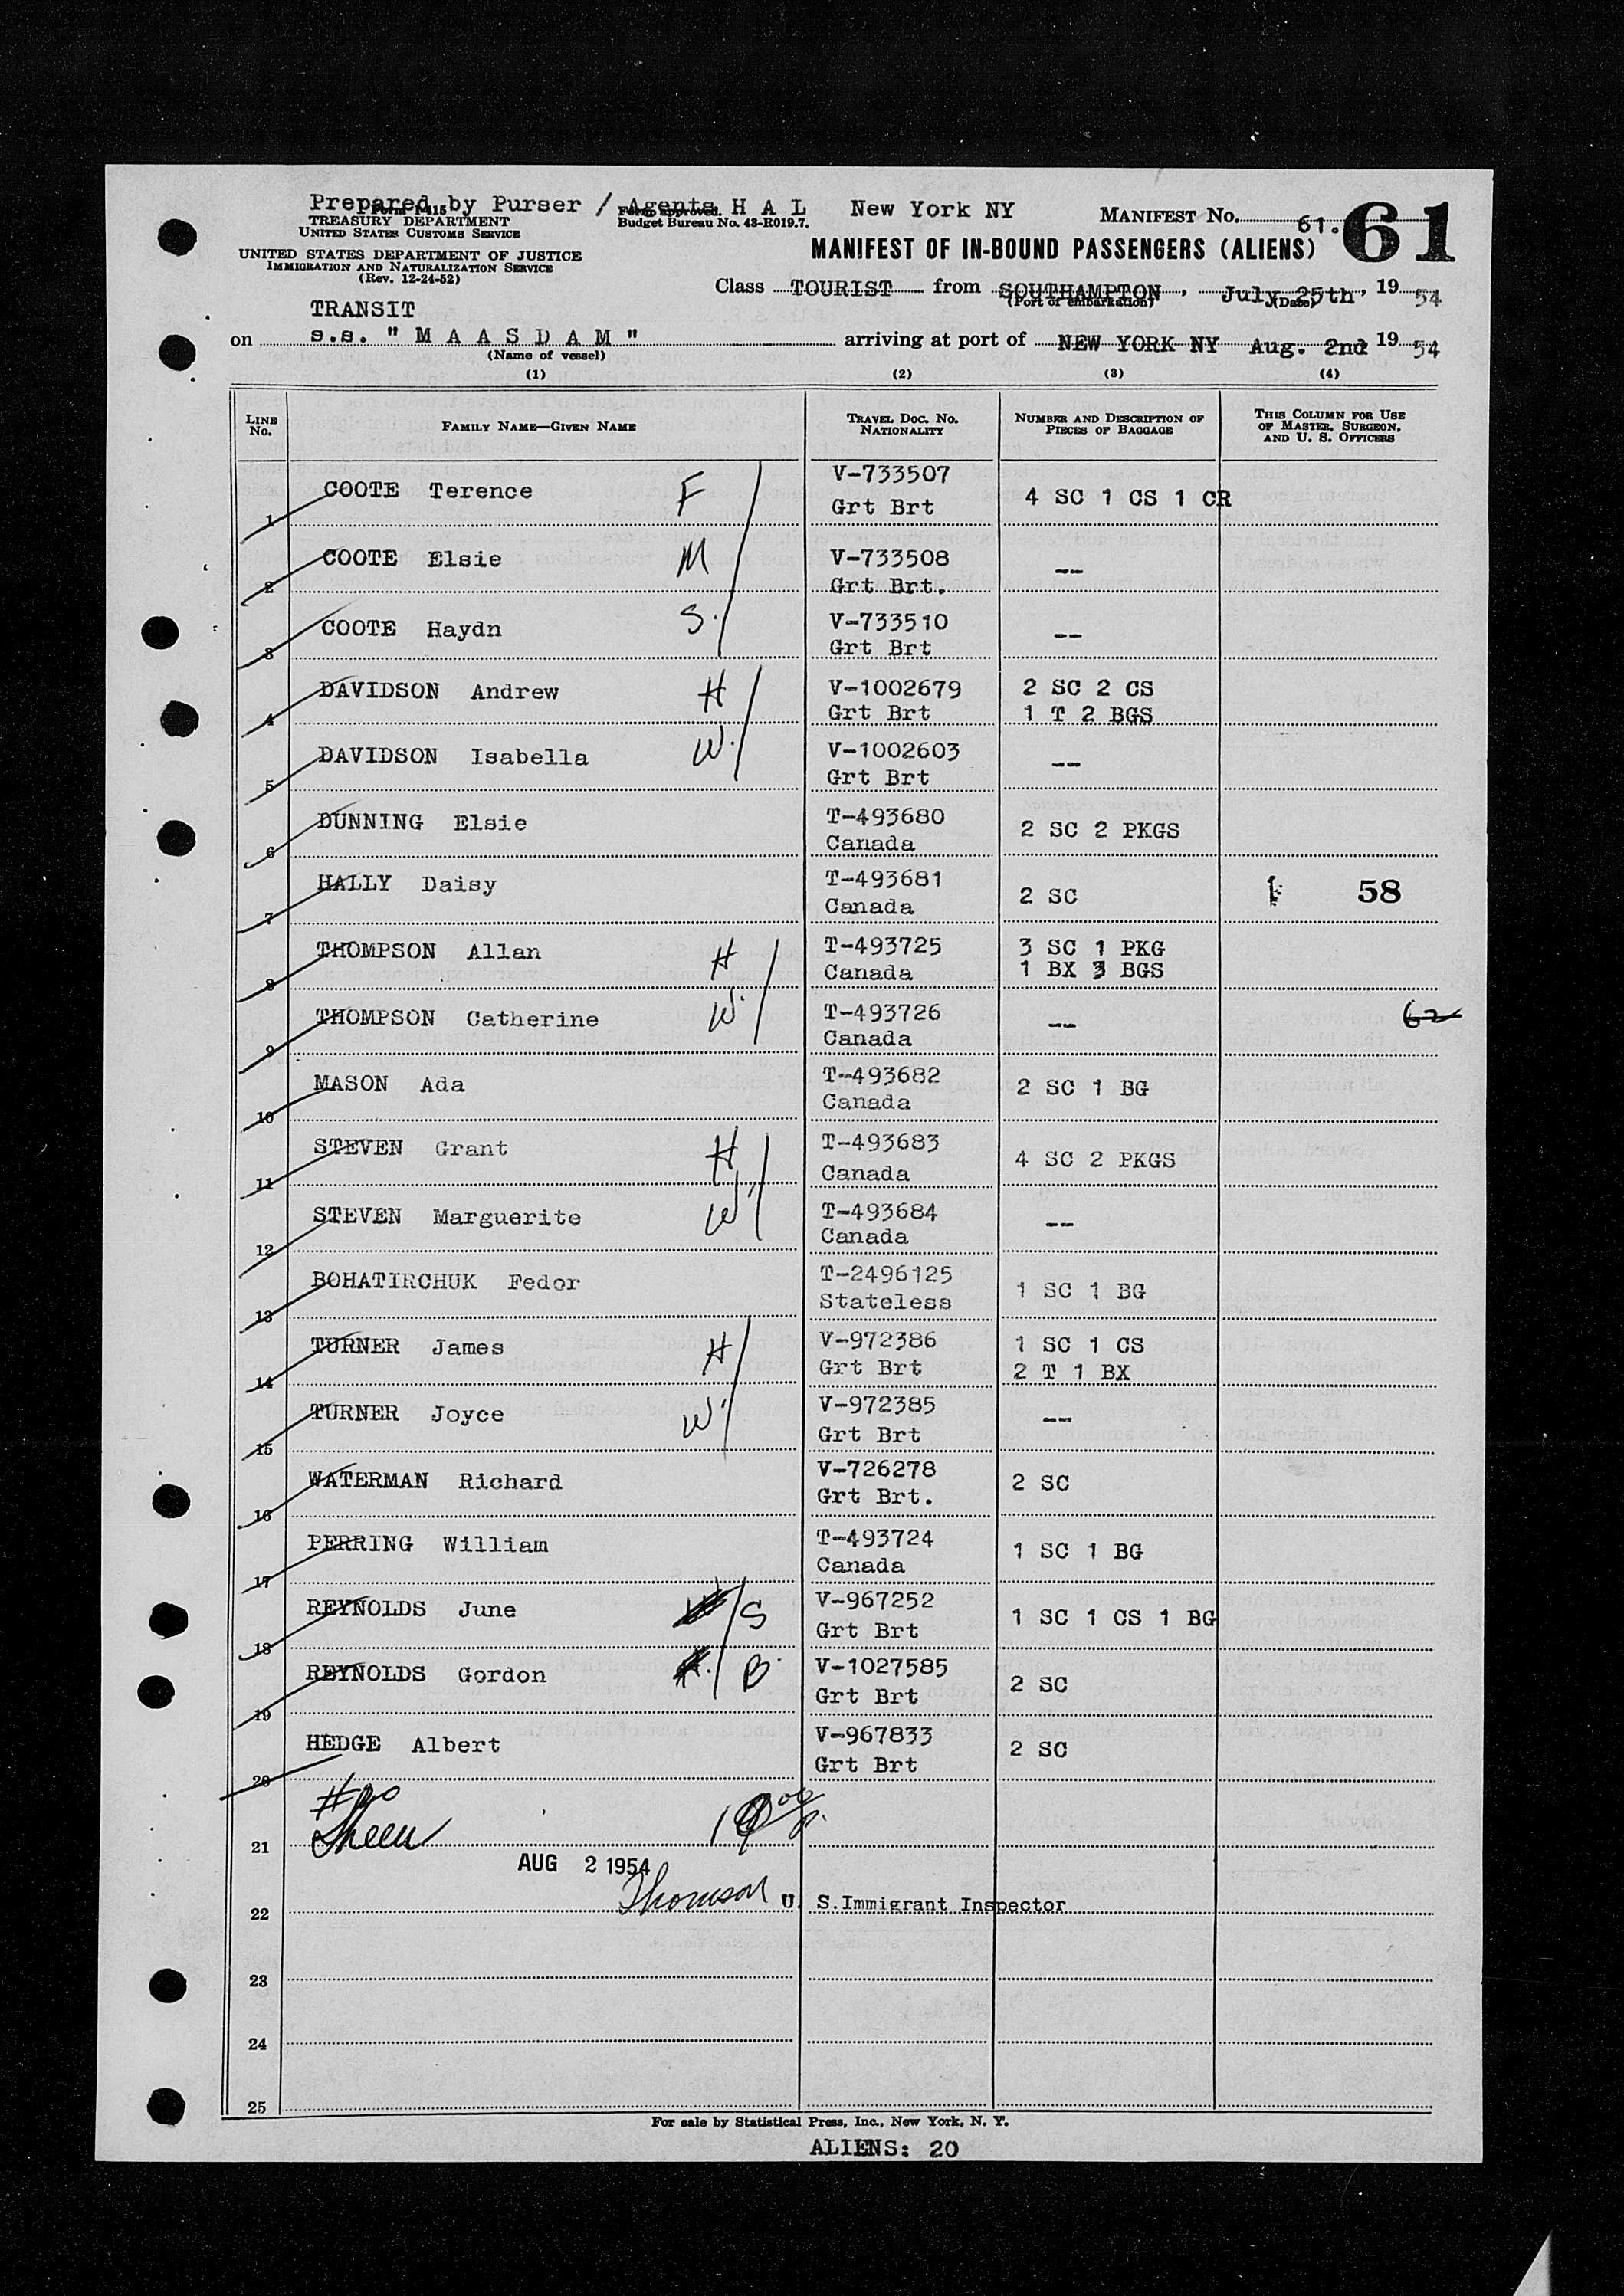 Prepared by Purser / Agents H A L New York NY
Form I-415
TREASURY DEPARTMENT
UNITED STATES CUSTOMS SERVICE
Form approved.
Budget Bureau No. 43-R019.7.
MANIFEST No. 61. 61
UNITED STATES DEPARTMENT OF JUSTICE
IMMIGRATION AND NATURALIZATION SERVICE
(Rev. 12-24-52)
MANIFEST OF IN-BOUND PASSENGERS (ALIENS)
Class TOURIST from SOUTHAMPTON, July 25th, 19 54
(Port of embarkation) (Date)
TRANSIT
on s.s. " M A A S D A M " arriving at port of NEW YORK NY Aug. 2nd 19 54
(Name of vessel)
(1) (2) (3) (4)
LINE No. FAMILY NAME—GIVEN NAME TRAVEL DOC. NO. NATIONALITY NUMBER AND DESCRIPTION OF PIECES OF BAGGAGE THIS COLUMN FOR USE OF MASTER, SURGEON, AND U. S. OFFICERS
1 COOTE Terence F V-733507 Grt Brt 4 SC 1 CS 1 CR
2 COOTE Elsie M V-733508 Grt Brt. --
3 COOTE Haydn S. V-733510 Grt Brt --
4 DAVIDSON Andrew H V-1002679 Grt Brt 2 SC 2 CS 1 T 2 BGS
5 DAVIDSON Isabella W. V-1002603 Grt Brt --
6 DUNNING Elsie T-493680 Canada 2 SC 2 PKGS
7 HALLY Daisy T-493681 Canada 2 SC 58
8 THOMPSON Allan H T-493725 Canada 3 SC 1 PKG 1 BX 3 BGS
9 THOMPSON Catherine W. T-493726 Canada -- 62
10 MASON Ada T-493682 Canada 2 SC 1 BG
11 STEVEN Grant H T-493683 Canada 4 SC 2 PKGS
12 STEVEN Marguerite W. T-493684 Canada --
13 BOHATIRCHUK Fedor T-2496125 Stateless 1 SC 1 BG
14 TURNER James H V-972386 Grt Brt 1 SC 1 CS 2 T 1 BX
15 TURNER Joyce W. V-972385 Grt Brt --
16 WATERMAN Richard V-726278 Grt Brt. 2 SC
17 PERRING William T-493724 Canada 1 SC 1 BG
18 REYNOLDS June S V-967252 Grt Brt 1 SC 1 CS 1 BG
19 REYNOLDS Gordon B. V-1027585 Grt Brt 2 SC
20 HEDGE Albert V-967833 Grt Brt 2 SC
21
AUG 2 1954
22 Thomson U. S.Immigrant Inspector
23
24
25
For sale by Statistical Press, Inc., New York, N. Y.
ALIENS: 20